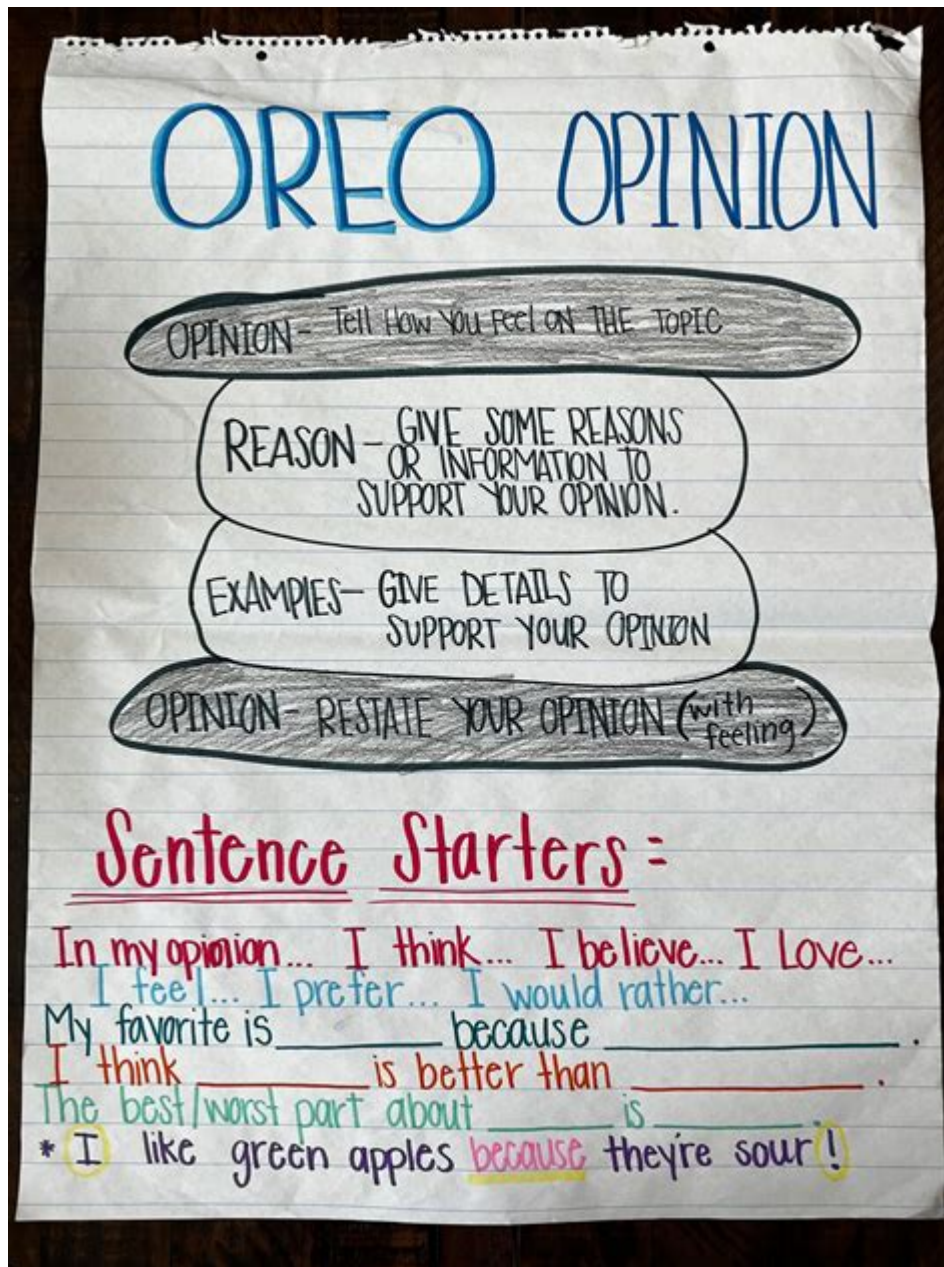 OREO OPINION
OPINION- Tell How You Feel ON THE TOPIC
REASON- GIVE SOME REASONS
OR INFORMATION TO
SUPPORT YOUR OPINION.
EXAMPLES- GIVE DETAILS TO
SUPPORT YOUR OPINION
OPINION- RESTATE YOUR OPINION (with
feeling)
Sentence Starters:
In my opinion... I think... I believe... I Love...
I feel... I prefer... I would rather...
My favorite is ________ because ________.
I think ________ is better than ________.
The best/worst part about ________ is ________.
* I like green apples because they're sour!